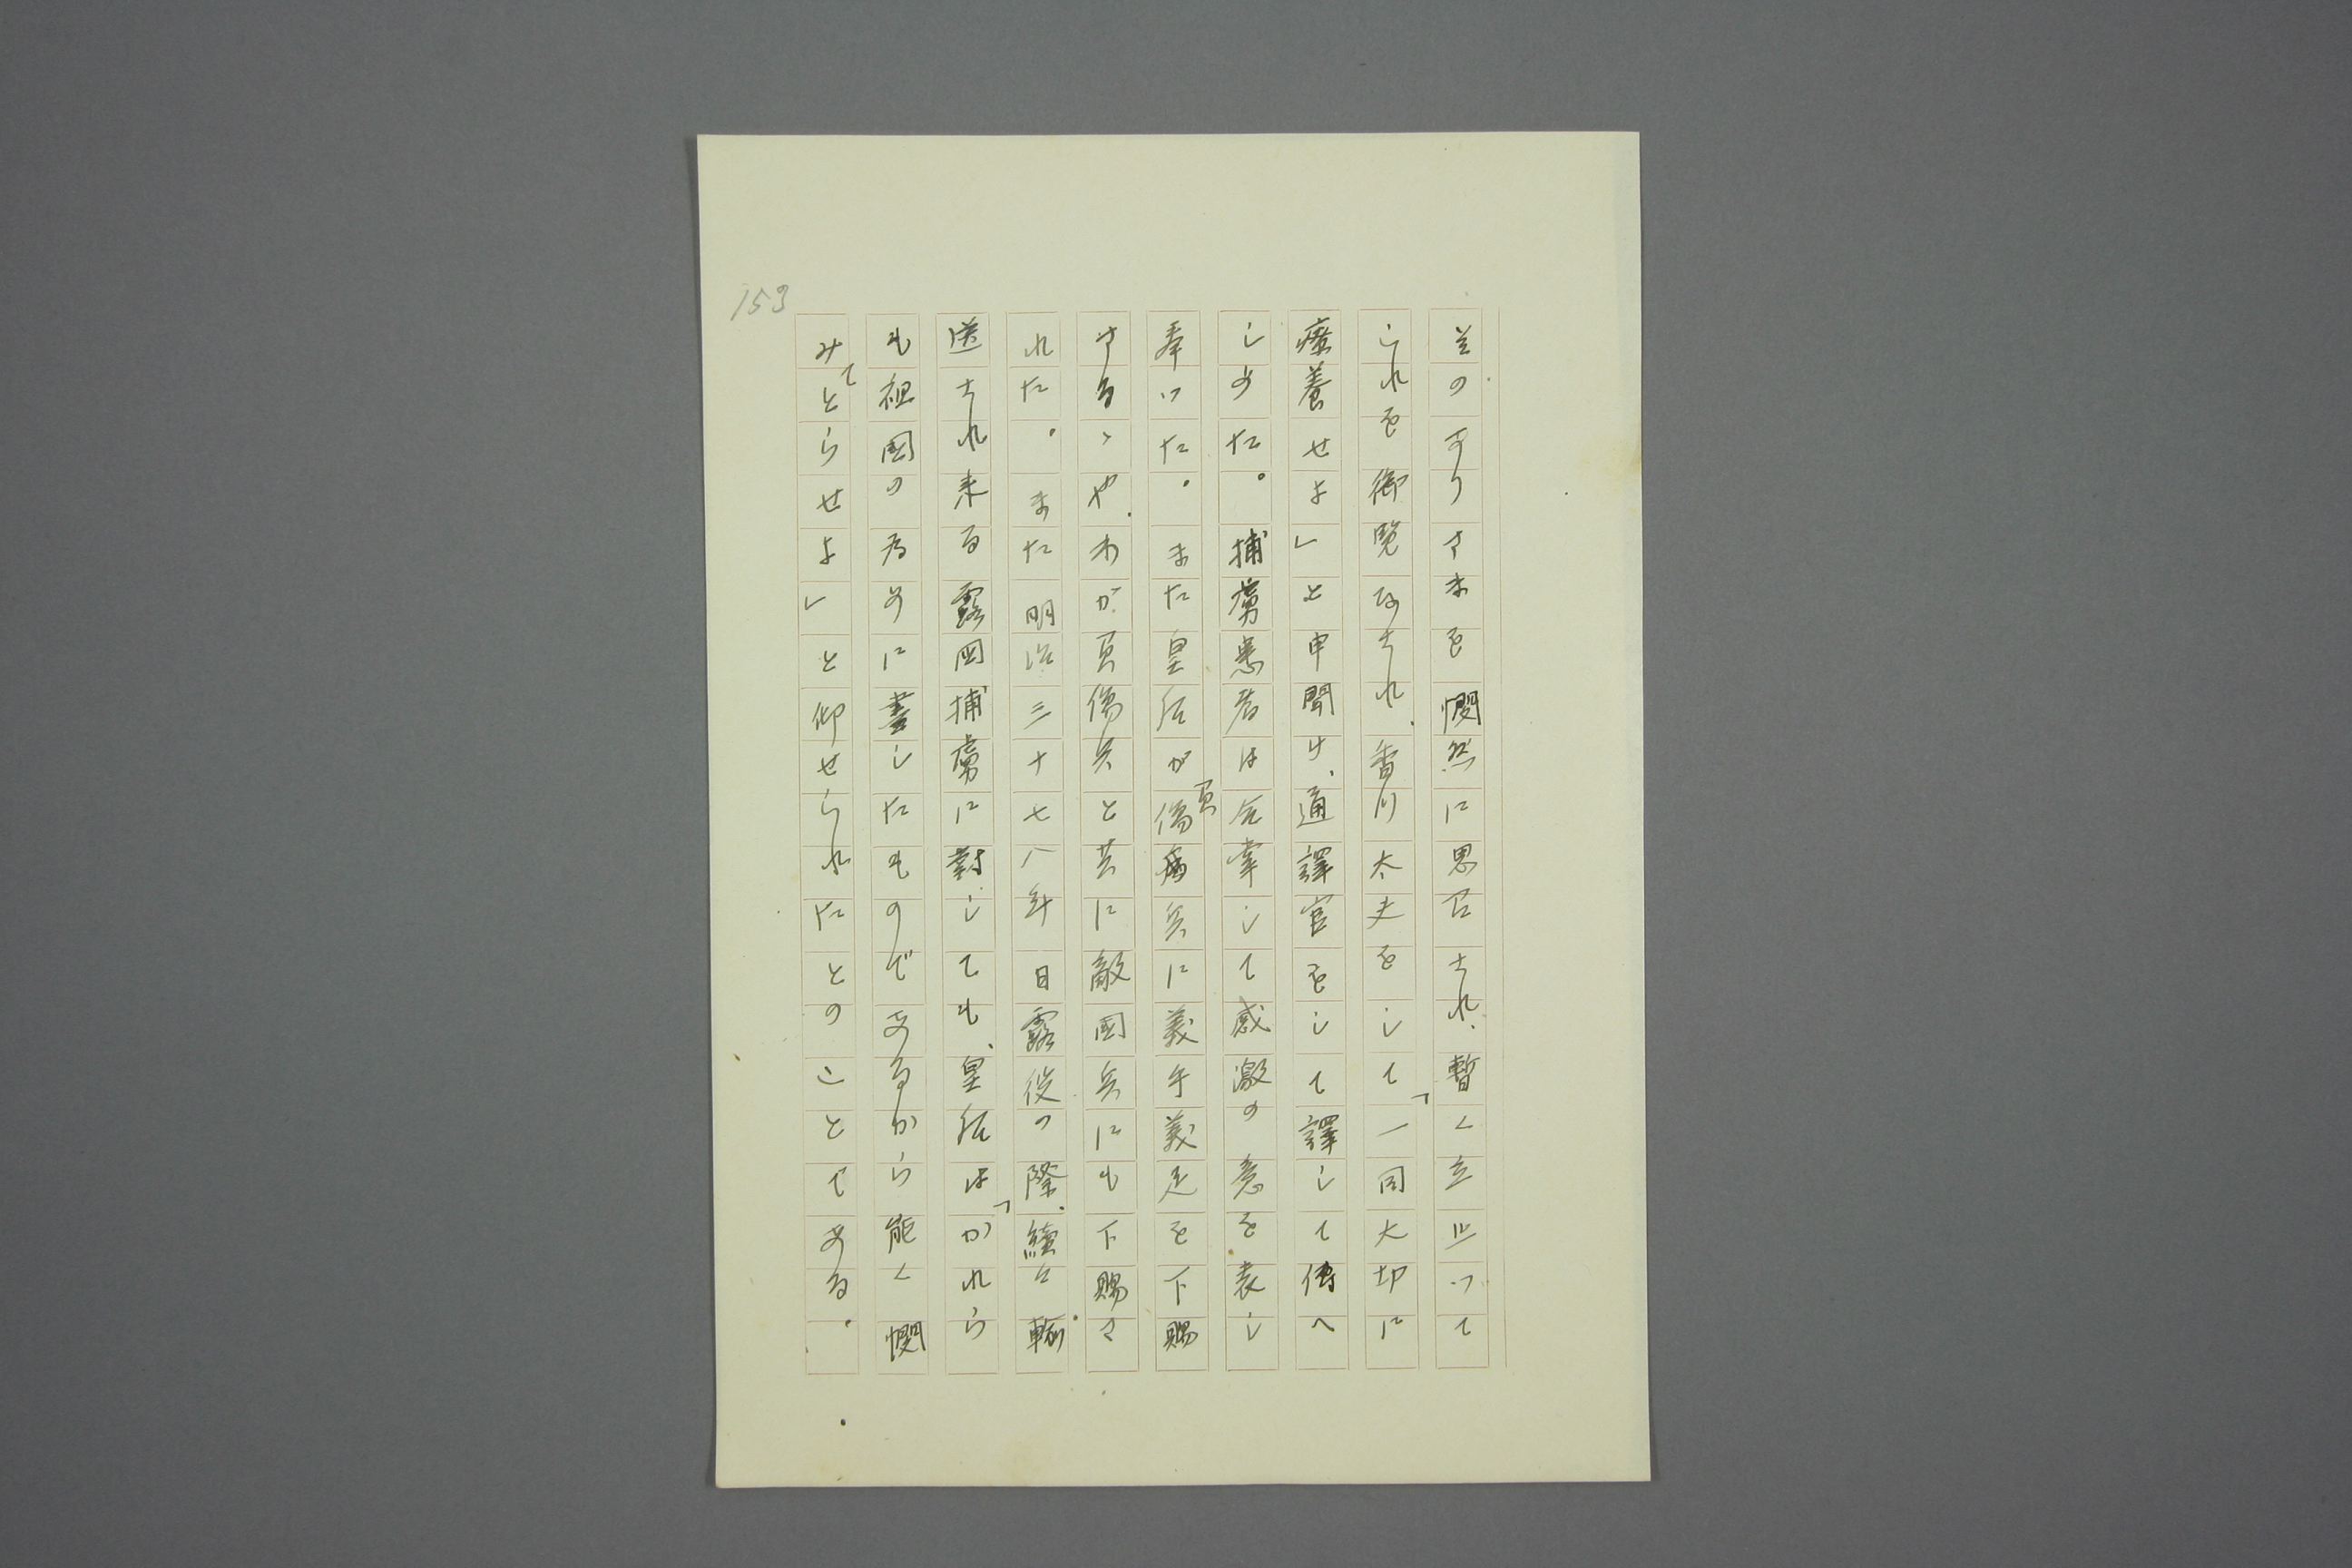 其のありさまを憫然に思召され、暫く立止つて
これを御覧なされ、香川太夫をして「一同大切に
療養せよ」と申聞け、通譯官をして譯して傳へ
しめた。捕虜患者は合掌して感激の意を表し
奉つた。また皇后が負傷病兵に義手義足を下賜
さるゝや、わが負傷兵と共に敵国兵にも下賜さ
れた。また明治三十七八年日露役の際、續々輸
送され来る露国捕虜に對しても、皇后は「かれら
も祖国の為めに盡したものであるから能く憫
みてとらせよ」と仰せられたとのことである。
153